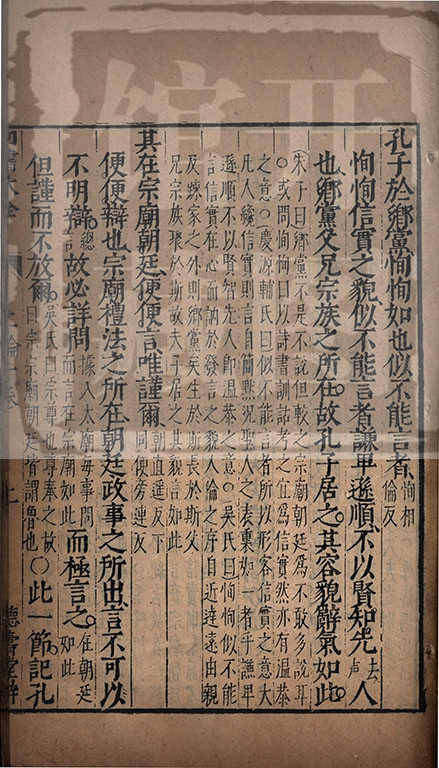 孔子於鄉黨恂恂如也似不能言者恂相倫反
恂恂信實之貌似不能言者謙卑遜順不以賢知先去聲人
也鄉黨父兄宗族之所在故孔子居之其容貌辭氣如此
朱子曰鄉黨不是不說但較之宗廟朝廷為不敢多說耳
○或問恂恂曰以詩書訓詁考之宜為信實然亦有溫恭
之意○慶源輔氏曰似不能言者所以形容信實之意大
凡人纔信實則言自簡黙況聖人之表裏如一者乎謙卑
遜順不以賢智先人即溫恭之意○吳氏曰恂恂似不能
言信實在心而訥於發言之貌人倫之序自近達遠由親
及踈家之外則鄉黨矣生於斯長於斯父
兄宗族聚於斯故夫子居之其貌言如此
其在宗廟朝廷便便言唯謹爾朝直遥反下同便旁連反
便便辯也宗廟禮法之所在朝廷政事之所出言不可以
不明辯總言故必詳問據入太廟每事問而言在宗廟如此而極言之在朝廷如此
但謹而不放爾吳氏曰宗尊也尊奉之故曰宗宗廟朝廷皆謂魯也○此一節記孔